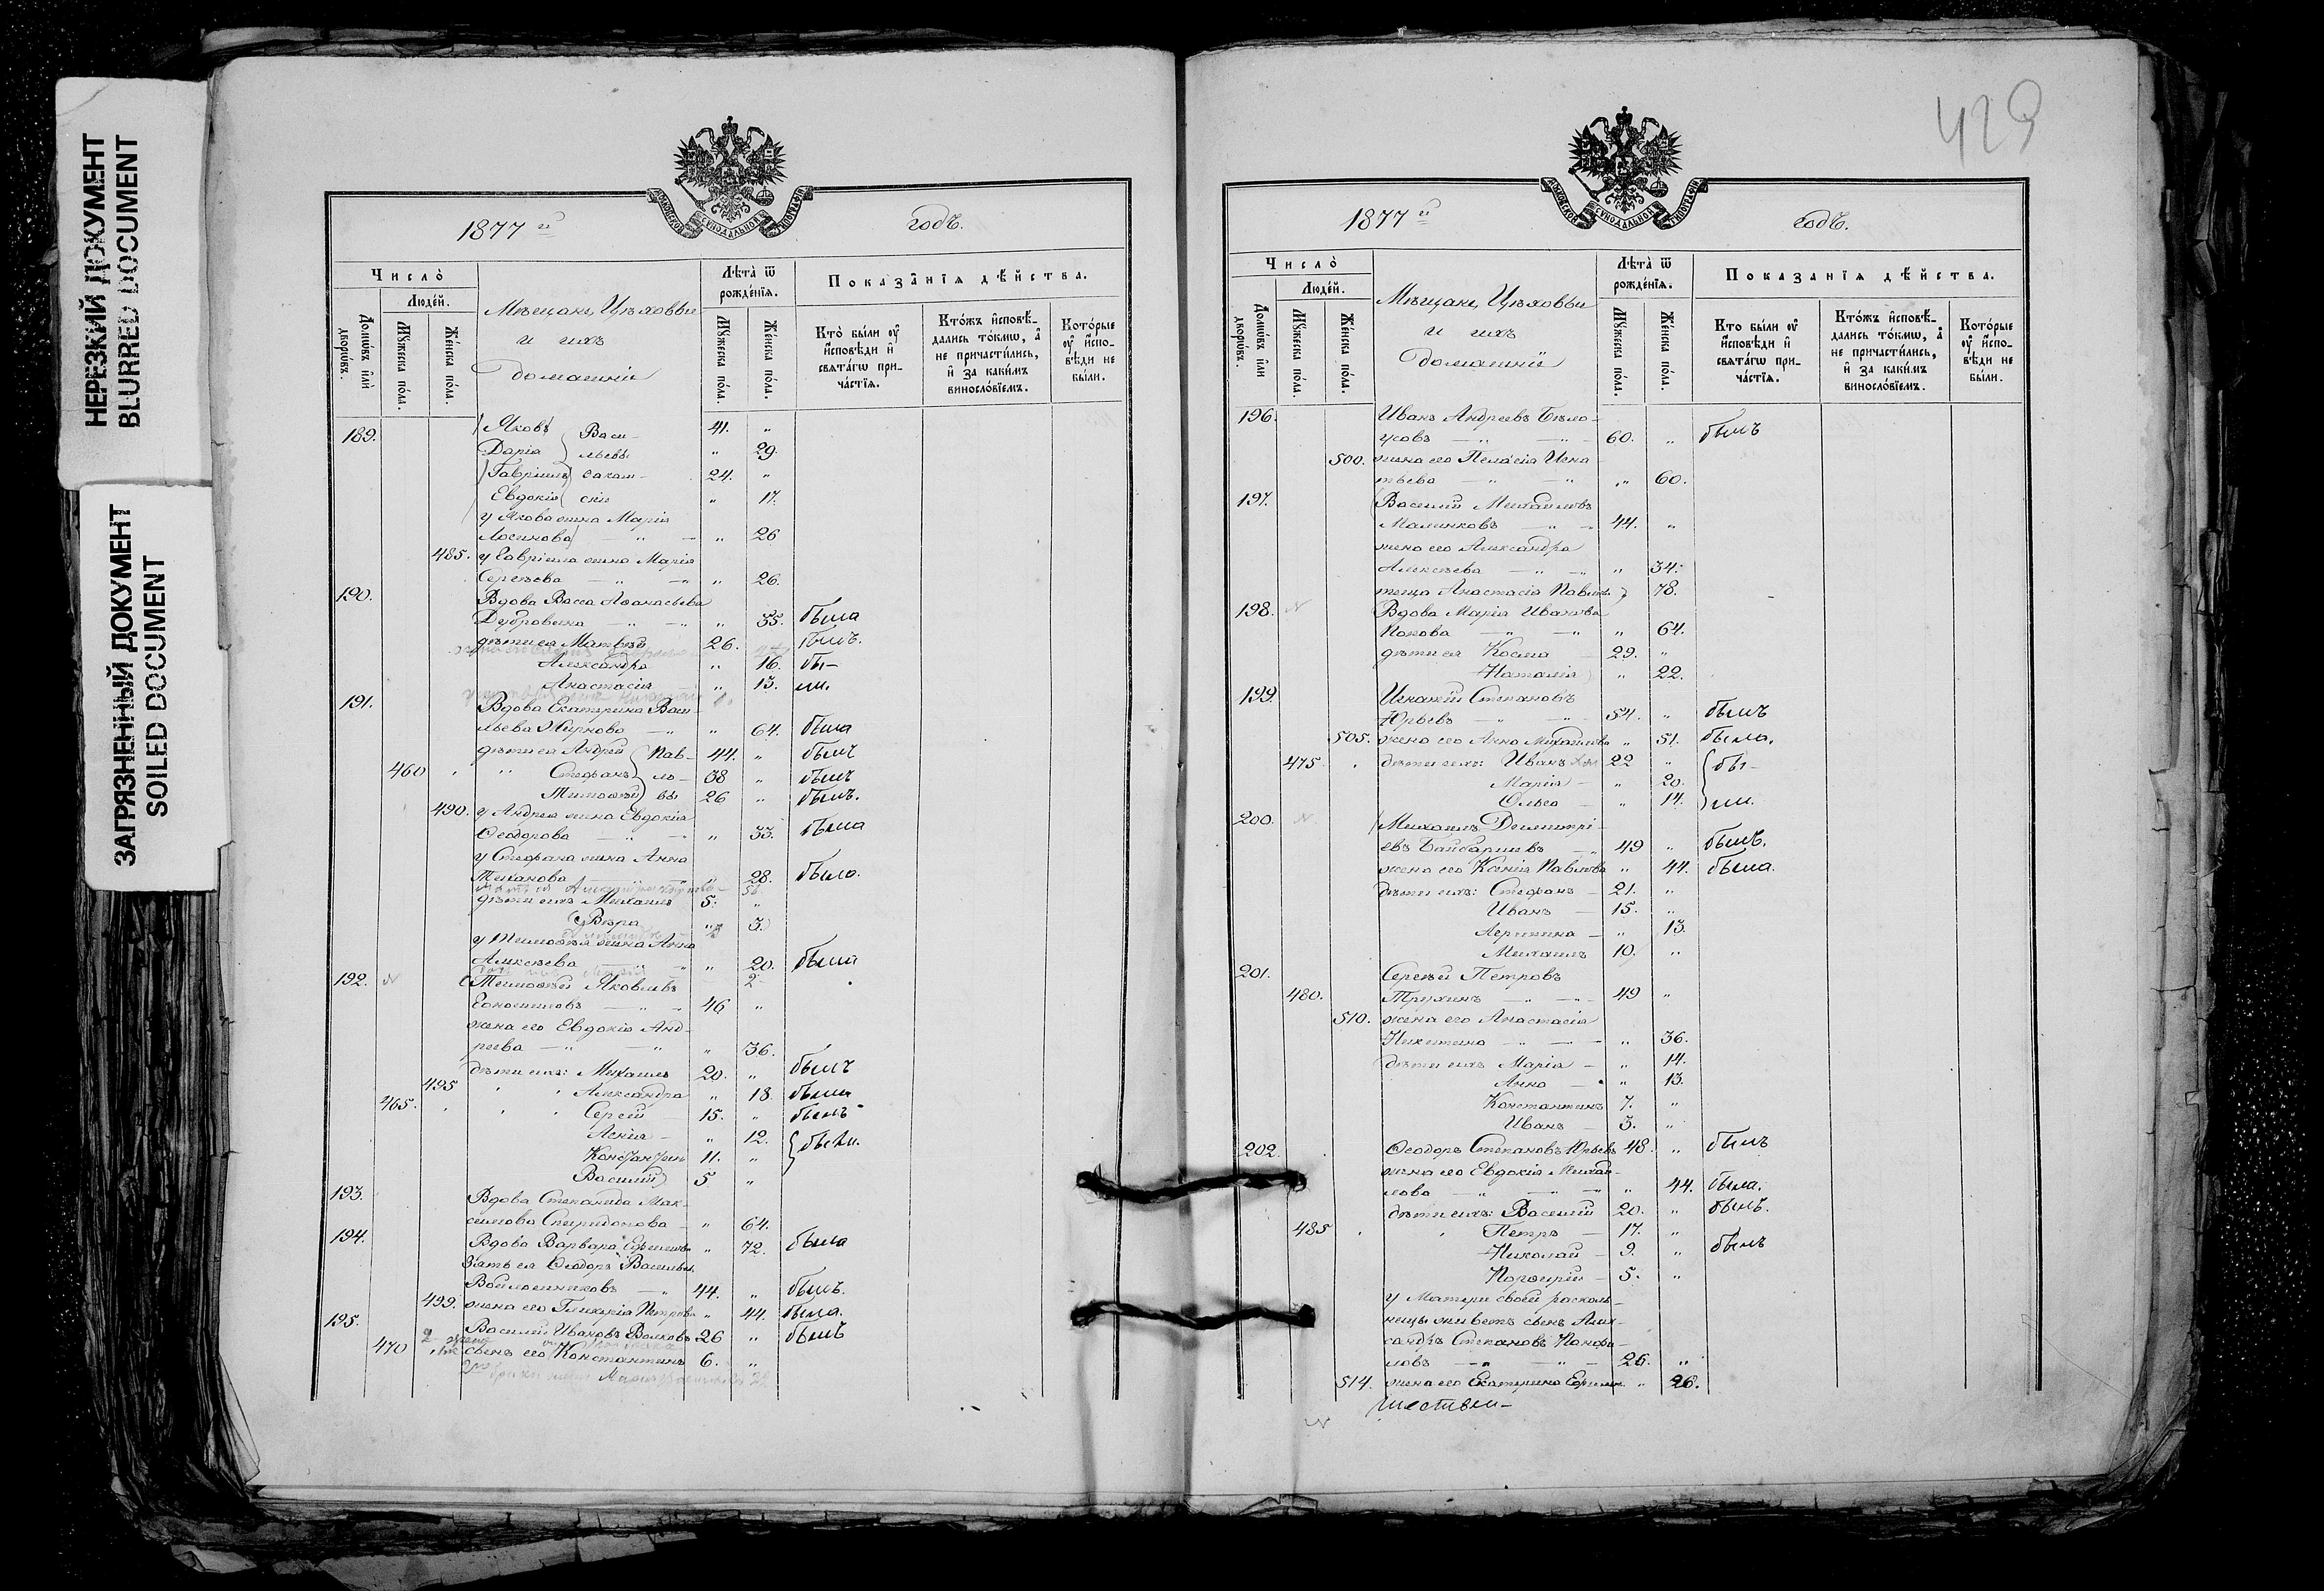 НЕРЕЗКИЙ ДОКУМЕНТ
BLURRED DOCUMENT
ЗАГРЯЗНЕННЫЙ ДОКУМЕНТ
SOILED DOCUMENT
МОСКОВСКОЙ СѴНОДАЛЬНОЙ ТИПОГРАФІИ
1877 й годъ.
Число̀
Домѡ́въ и҆лѝ дворѡ́въ.
Люде́й.
Мꙋ́жеска по́ла.
Же́нска по́ла.
Мѣщане, Цѣховые
и ихъ
домашніи
Лѣта̀ ѿ рожде́нїѧ.
Мꙋ́жеска по́ла.
Же́нска по́ла.
Показа̑нїѧ дѣ́йства.
Кто̀ бы́ли ᲂу҆ и҆сповѣди и҆ свѧта́гѡ прича́стїѧ.
Кто́жъ и҆сповѣ́дались то́кмѡ, а҆ не причасти́лись, и҆ за каки́мъ винослѡ́вїемъ.
Кото́рые ᲂу҆ и҆спо­вѣди не бы́ли.
189. Яковъ Васи- 41. "
Дарія льевы " 29.
Гавріилъ 24. "
Евдокія " 17.
у Якова жена Марія
Логинова " 26
485. у Гавріила жена Марія
Сергѣева " 26.
190. Вдова Васса Аѳанасьева
Дубровина " 35. была
дѣти ея Матвѣй 26. былъ.
Александра " 16. бы-
Анастасія " 13. ли.
191. Вдова Екатерина Васи-
льева Жиркова " 64. была
дѣти ея Андрей Пав- 44. " былъ
460 " Стефанъ ло- 38 " былъ
Тимоѳей вы 26 " былъ.
490. у Андрея жена Евдокія
Ѳеодорова " 33. была
у Стефана жена Анна
Тиханова " 28. была.
дѣти ихъ Михаилъ 5. "
Вѣра " 3.
у Тимоѳея жена Анна
Алексѣева " 20. была
192. Тимоѳей Яковлевъ
46 "
жена его Евдокія Анд-
реева " 36.
дѣти ихъ: Михаилъ 20. " былъ
495 Александра " 18. была
465. Сергій 15. " былъ
" 12. были.
Константинъ 11. "
Василій 5 "
193. Вдова Степанида Мак-
симова Спиридонова " 64.
194. Вдова Варвара Ефимова " 72. была
Зять ея Ѳеодоръ Васильевъ
Войлошниковъ 44. " былъ.
499. жена его Гликерія Петрова " 44. была.
195. Василій Ивановъ Волковъ 26 " былъ
470 сынъ его Константинъ 6. "
429
МОСКОВСКОЙ СѴНОДАЛЬНОЙ ТИПОГРАФІИ
1877 й годъ.
Число̀
Домѡ́въ и҆лѝ дворѡ́въ.
Люде́й.
Мꙋ́жеска по́ла.
Же́нска по́ла.
Мѣщане, Цѣховые
и ихъ
домашніи
Лѣта̀ ѿ рожде́нїѧ.
Мꙋ́жеска по́ла.
Же́нска по́ла.
Показа̑нїѧ дѣ́йства.
Кто̀ бы́ли ᲂу҆ и҆сповѣди и҆ свѧта́гѡ прича́стїѧ.
Кто́жъ и҆сповѣ́дались то́кмѡ, а҆ не причасти́лись, и҆ за каки́мъ винослѡ́вїемъ.
Кото́рые ᲂу҆ и҆спо­вѣди не бы́ли.
196. Иванъ Андреевъ Бѣло-
усовъ 60. " былъ
500. жена его Пелагія Игна-
тьева " 60.
197. Василій Михайловъ
Малинковъ 44. "
жена его Александра
Алексѣева " 34.
теща Анастасія Павлова 78.
198. Вдова Марія Иванова
Попова " 64.
дѣти ея Косма 29. "
Наталія " 22.
199. Игнатій Степановъ
Юрьевъ 54. " былъ
505. жена его Анна Михайлова " 51. была.
475. дѣти ихъ: Иванъ 22 " бы-
Марія " 20.
Ольга " 14. ли.
200. Михаилъ Димитрі-
евъ Байбаришевъ 49 " былъ.
жена его Ксенія Павлова " 44. была.
дѣти ихъ: Стефанъ 21. "
Иванъ 15. "
Агриппина " 13.
Михаилъ 10. "
201. Сергѣй Петровъ
480. Трухинъ 49 "
510. жена его Анастасія
Никитина " 36.
дѣти ихъ Марія " 14.
Анна " 13.
Константинъ 7. "
Иванъ 3. "
202. Ѳеодоръ Степановъ Юрьевъ 48. " былъ
жена его Евдокія Михай-
лова " 44. была.
дѣти ихъ: Василій 20. " былъ.
485 Петръ 17. "
Николай 9. " былъ
Порфирій 5. "
у Матери своей расколь-
ницы живетъ сынъ Алек-
сандръ Степановъ Панфи-
ловъ 26. "
514. жена его Екатерина " 26.